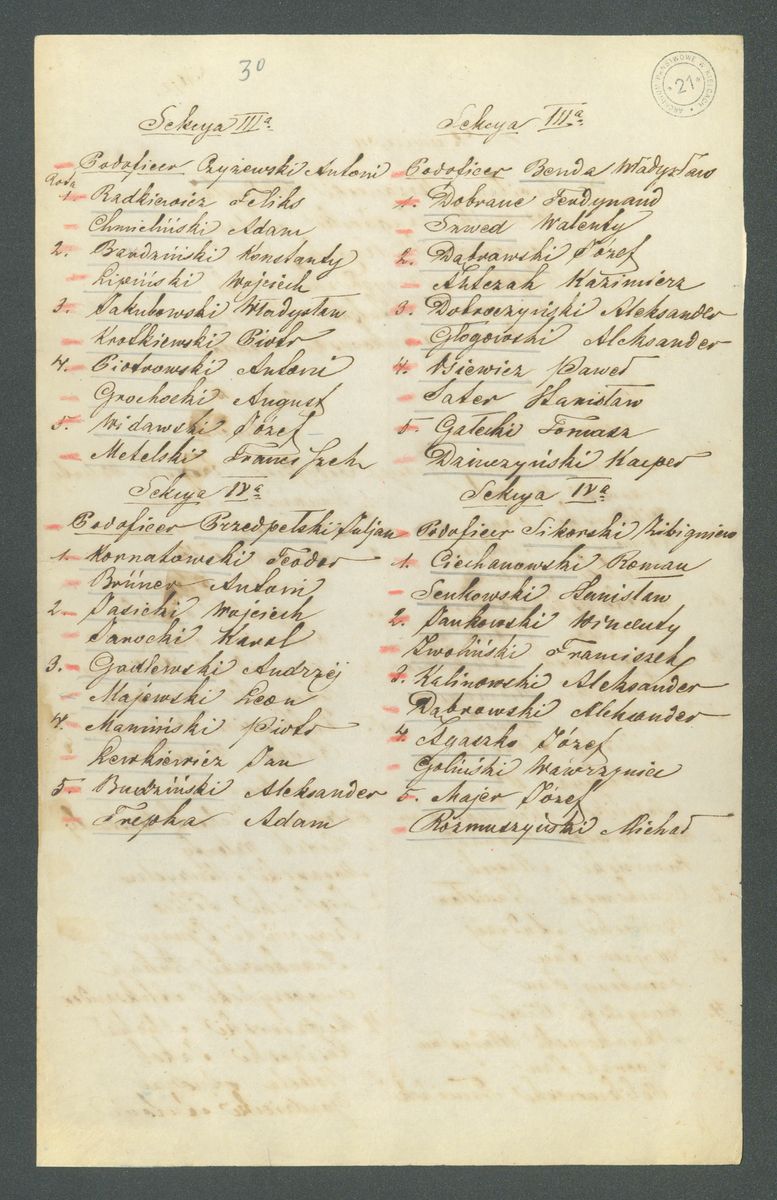 30
ARCHIWUM PAŃSTWOWE W KIELCACH
21
Sekcya IIIa
Podoficer Czyżewski Antoni
Rota
1. Radkiewicz Feliks
Chmieliński Adam
2. Bardziński Konstanty
Lipiński Wojciech
3. Jakubowski Władysław
Krotkiewski Piotr
4. Piotrowski Antoni
Grochocki August
5. Widawski Józef
Metelski Franciszek
Sekcya IVa
Podoficer Przedpełski Juljan
1. Kornatowski Teodor
Brüner Antoni
2. Jasicki Wojciech
Jarocki Karol
3. Godlewski Andrzéj
Majewski Leon
4. Mamiński Piotr
Lewkiewicz Jan
5. Budziński Aleksander
Trepka Adam
Sekcya IIIa
Podoficer Benda Władysław
1. Dobrane Ferdynand
Szwed Walenty
2. Dąbrowski Józef
Kazimierz
3. Dobroczyński Aleksander
Głogowski Aleksander
4. Paweł
Sater Stanisław
5. Gałecki Tomasz
Kacper
Sekcya IVa
Podoficer Sikorski Zbigniew
1. Ciechanowski Roman
Senkowski Stanisław
2. Jankowski Wincenty
Zwoliński Franciszek
3. Kalinowski Aleksander
Dąbrowski Aleksander
4. Agaszko Józef
Goliński Wawrzyniec
5. Majer Józef
Rozmuszyński Michał